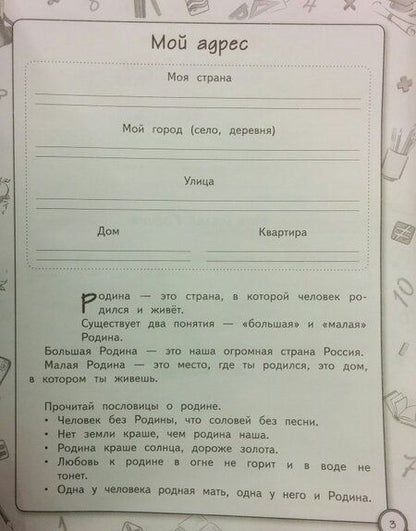 Мой адрес
Моя страна
Мой город (село, деревня)
Улица
Дом Квартира
Родина — это страна, в которой человек ро-
дился и живёт.
Существует два понятия — «большая» и «малая»
Родина.
Большая Родина — это наша огромная страна Россия.
Малая Родина — это место, где ты родился, это дом,
в котором ты живешь.
Прочитай пословицы о родине.
• Человек без Родины, что соловей без песни.
• Нет земли краше, чем родина наша.
• Родина краше солнца, дороже золота.
• Любовь к родине в огне не горит и в воде не
тонет.
• Одна у человека родная мать, одна у него и Родина.
3